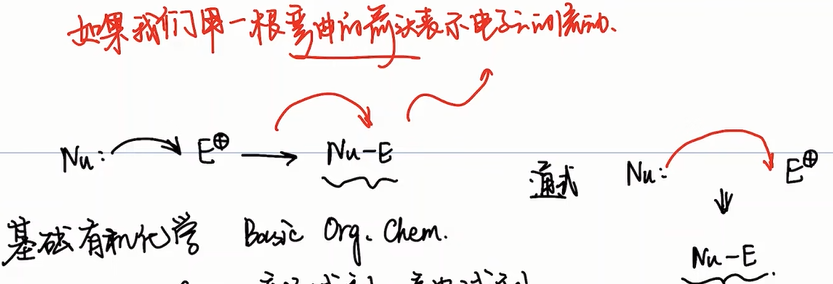 如果我们用一根弯曲的箭头表示电子云的流动.
Nu: E⊕ → Nu-E
通式 Nu: E⊕
↓
Nu-E
基础有机化学 Basic Org. Chem.